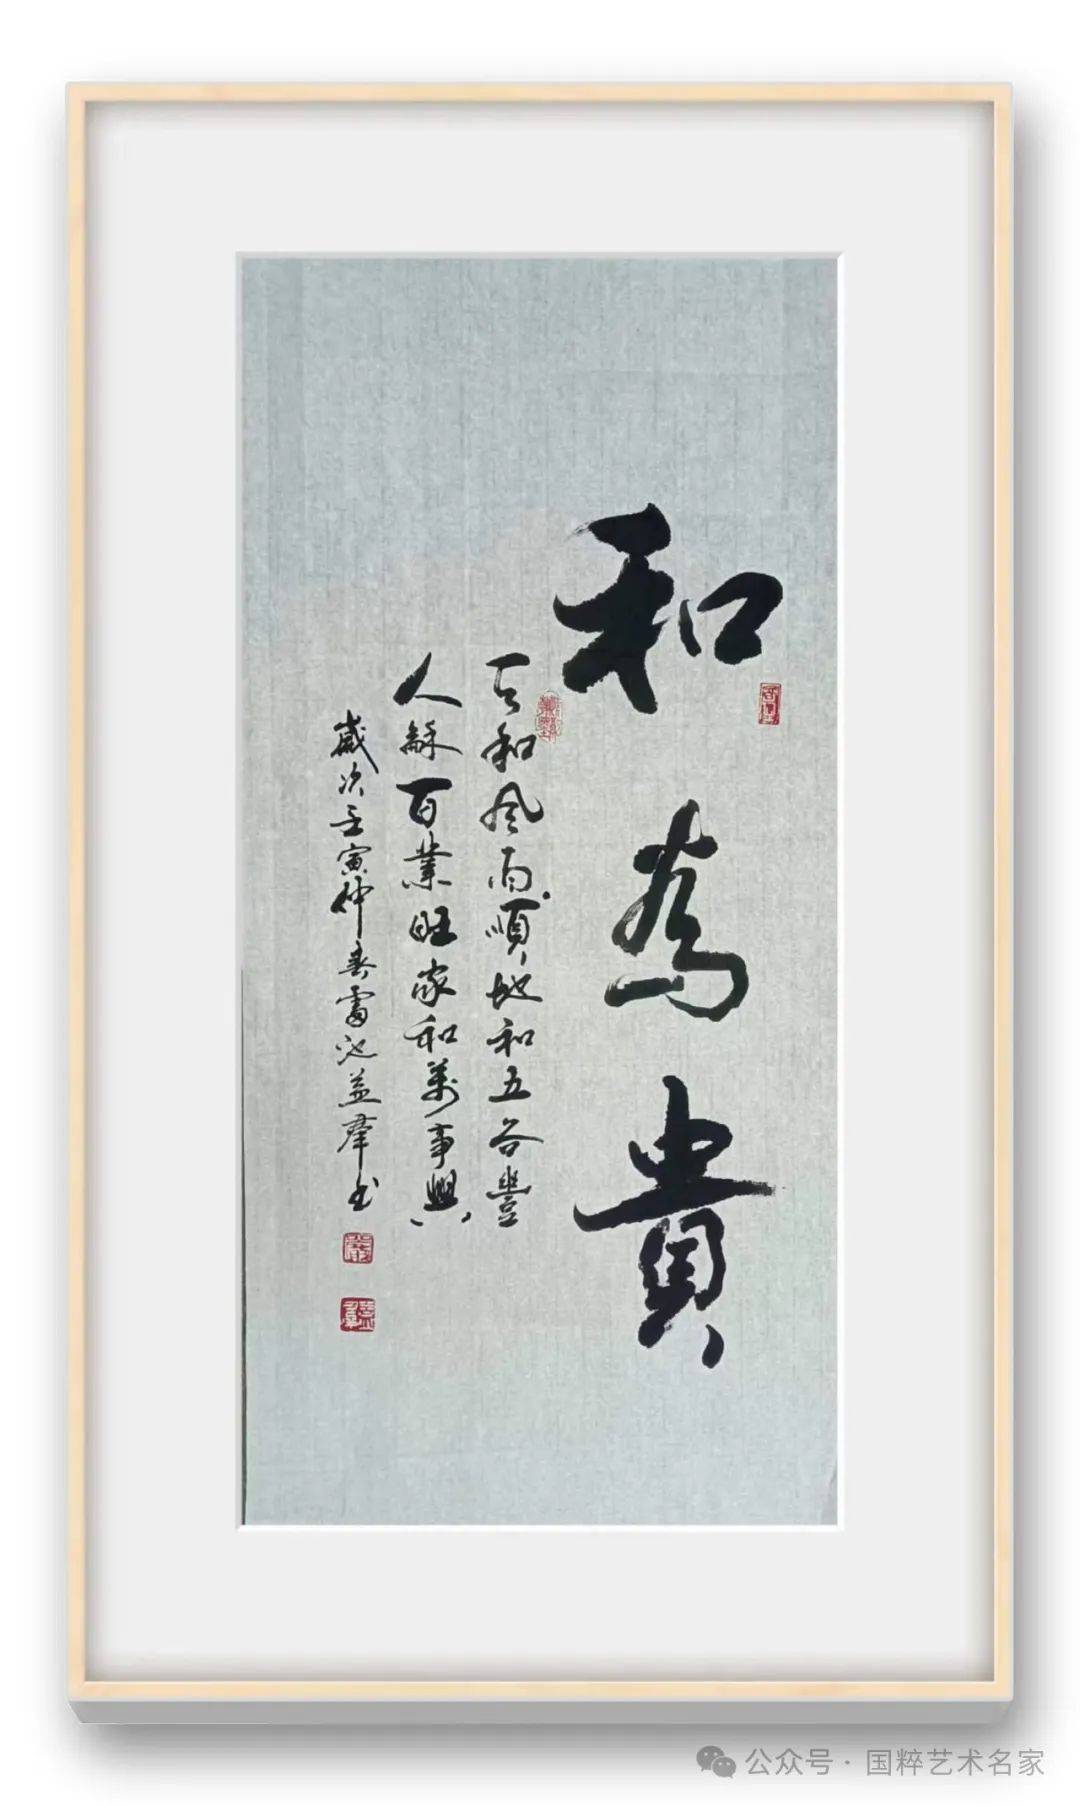 和為貴
天和風雨順地和五谷豐
人龢百業旺家和萬事興
歲次壬寅仲春雷池益群书
公众号 · 国粹艺术名家